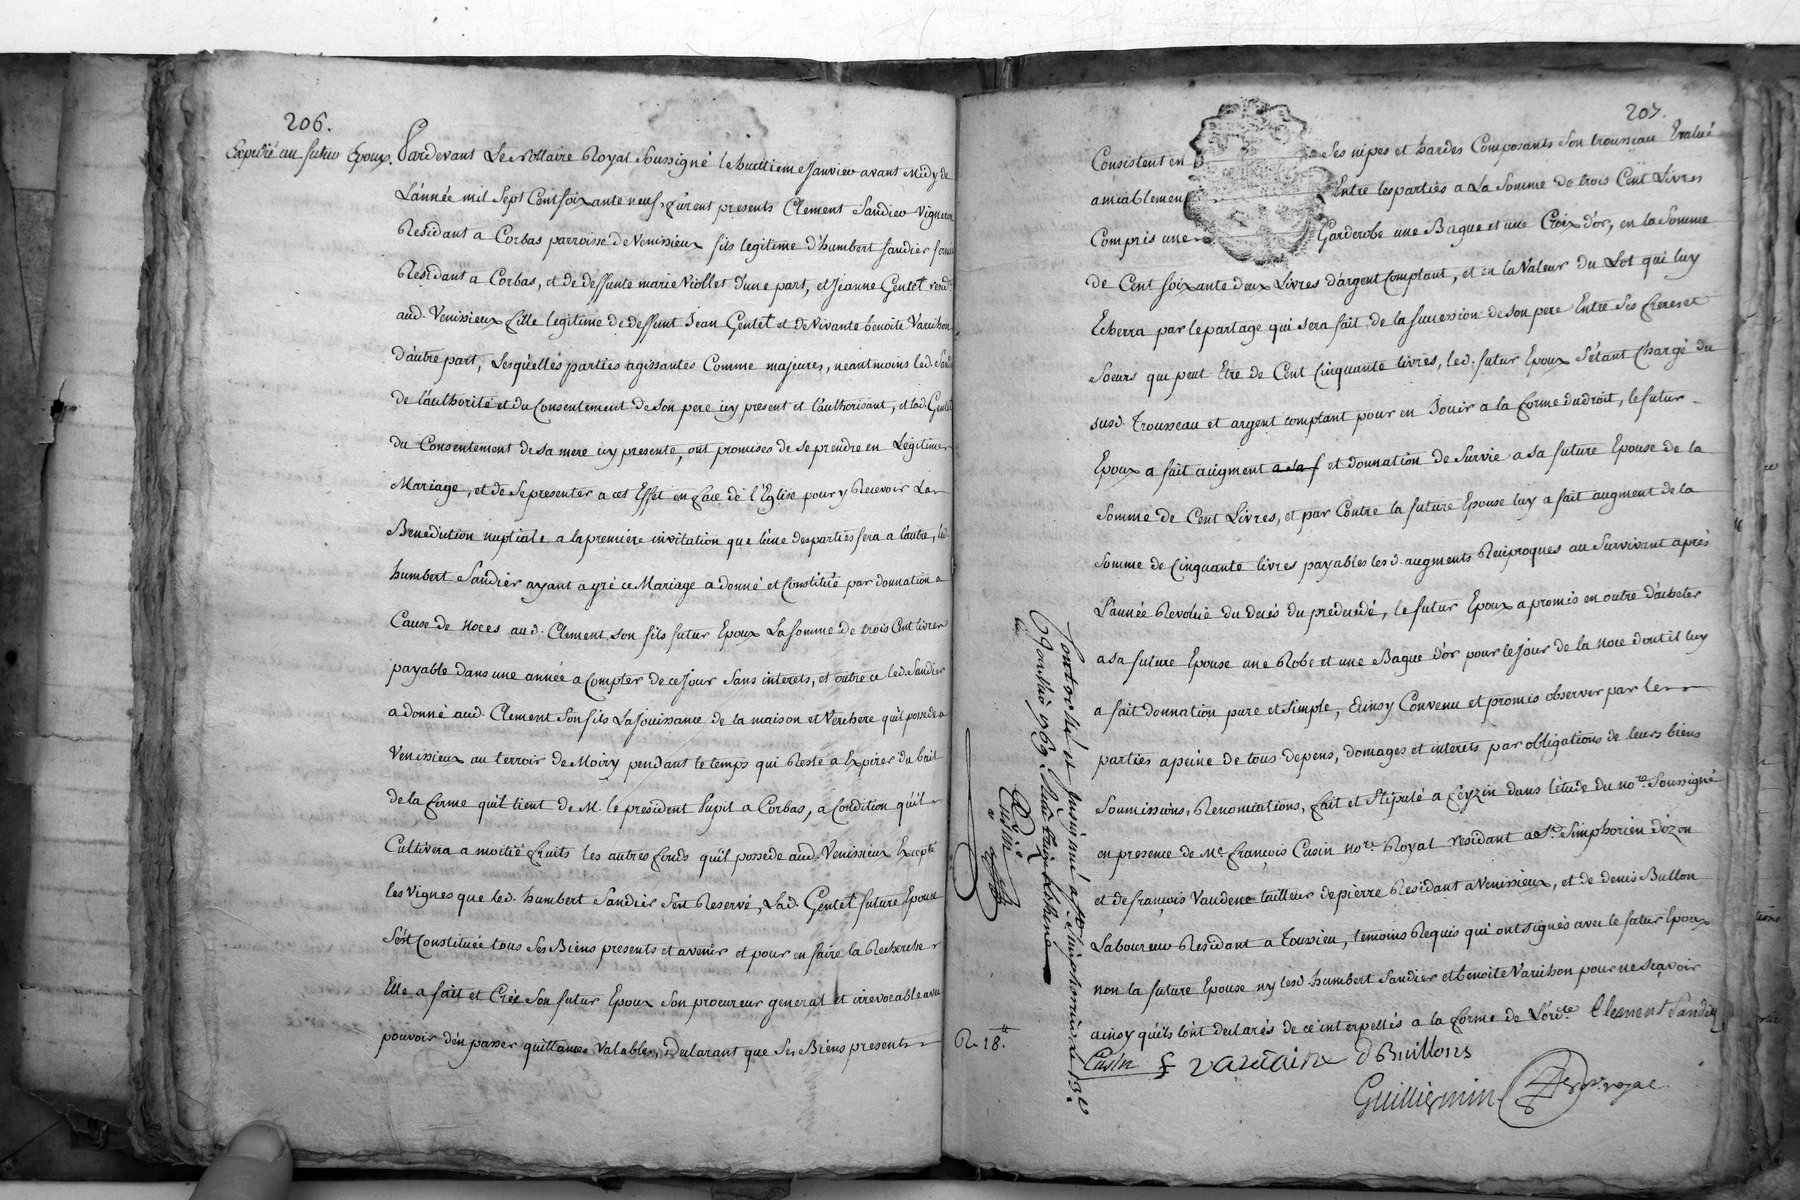 206.
Expedié au futur Epoux.
Pardevant Le Nottaire Royal Soussigné le huittieme Janvier avant Midy de
L'année mil Sept Cent soixante neuf, furent presents Clement Sandier Vigneron
Residant a Corbas parroisse de Venissieux fils legitime d'humbert Sandier fermier
Residant a Corbas, et de deffunte marie Viollet d'une part, et Jeanne Gentet resid.te
aud. Venissieux fille legitime de deffunt Jean Gentet et de Vivante benoite Varichon
d'autre part, Lesquelles parties agissantes Comme majeures, neantmoins led. Sand
de l'authorité et du Consentement de Son pere icy present et l'authorisant, et lad. Gentet
du Consentement de sa mere icy presente, ont promises de se prendre en Legitime
Mariage, et de Se presenter a cet Effet en face de l'Eglise pour y Recevoir La
Benediction nuptiale a la premiére invitation que l'une des parties fera a l'autre, led.
humbert Sandier ayant agréé ce Mariage a donné et Constitué par donnation a
Cause de Noces aud. Clement, son fils futur Epoux La Somme de trois Cent livres
payable dans une année a Compter de ce jour Sans interets, et outre ce led. Sandier
a donné aud. Clement Son fils La jouissance de la maison et Verchere qu'il possede a
Venissieux au terroir de Moiry pendant le temps qui Reste a Expirer du bail
de la ferme qu'il tient de M. le president Pupil a Corbas, a Condition qu'il
Cultivera a moitié fruits les autres fonds qu'il possede aud. Venissieux Excepté
les Vignes que led. humbert Sandier s'est Reservé, Lad. Gentet future Epouse
S'est Constituée tous Ses Biens presents et avenir et pour en faire la Recherche
Elle a fait et Créé Son futur Epoux Son procureur general et irrevocable avec
pouvoir d'en passer quittances Valables, Declarant que Ses Biens presents
207.
Consistent en Ses nipes et hardes Composants Son trousseau Evalué
amiablement Entre les parties a La Somme de trois Cent Livres
Compris une Garderobe une Bague et une Croix d'or, en la Somme
de Cent soixante deux Livres d'argent Comptant, et en la Valeur du Lot qui luy
Echerra par le partage qui sera fait de la succession de son pere Entre Ses freres et
Soeurs qui peut Etre de Cent Cinquante livres, led. futur Epoux S'étant Chargé du
susd. Trousseau et argent comptant pour en Jouir a la forme du droit, le futur
Epoux a fait augment a sa f et donnation de Survie a sa future Epouse de la
Somme de Cent Livres, et par Contre la future Epouse luy a fait augment de la
Somme de Cinquante livres payables lesd. augments Reciproques au Survivant aprés
L'année Revolue du decés du predecedé, le futur Epoux a promis en outre d'acheter
a sa future Epouse une Robe et une Bague d'or pour le jour de la noce dont il luy
a fait donnation pure et simple, Ainsy Convenu et promis observer par les
parties a peine de tous depens, domages et interets par obligations de leurs biens
Soumissions, Renonciations, fait et Stipulé a feyzin dans l'étude du no.re Soussigné
en presence de Me. françois Cusin no.re Royal residant a St. Simphorien d'ozon
et de françois Vaudene tailleur de pierre Residant a Venissieux, et de denis Bullon
Laboureur Residant a Toussieu, temoins Requis qui ont signés avec le futur Epoux
non la future Epouse ny lesd. humbert Sandier et benoite Varichon pour ne sçavoir
ainsy qu'ils l'ont declarés de ce interpellés a la forme de L'ord.ce Clement Sandier
Cusin f Vaudaine d Buillons
Guilliermin no.re royal
Controllé et insinué a St. Simphorien Le 13e
Janvier 1769.
Cusin
R. 18.